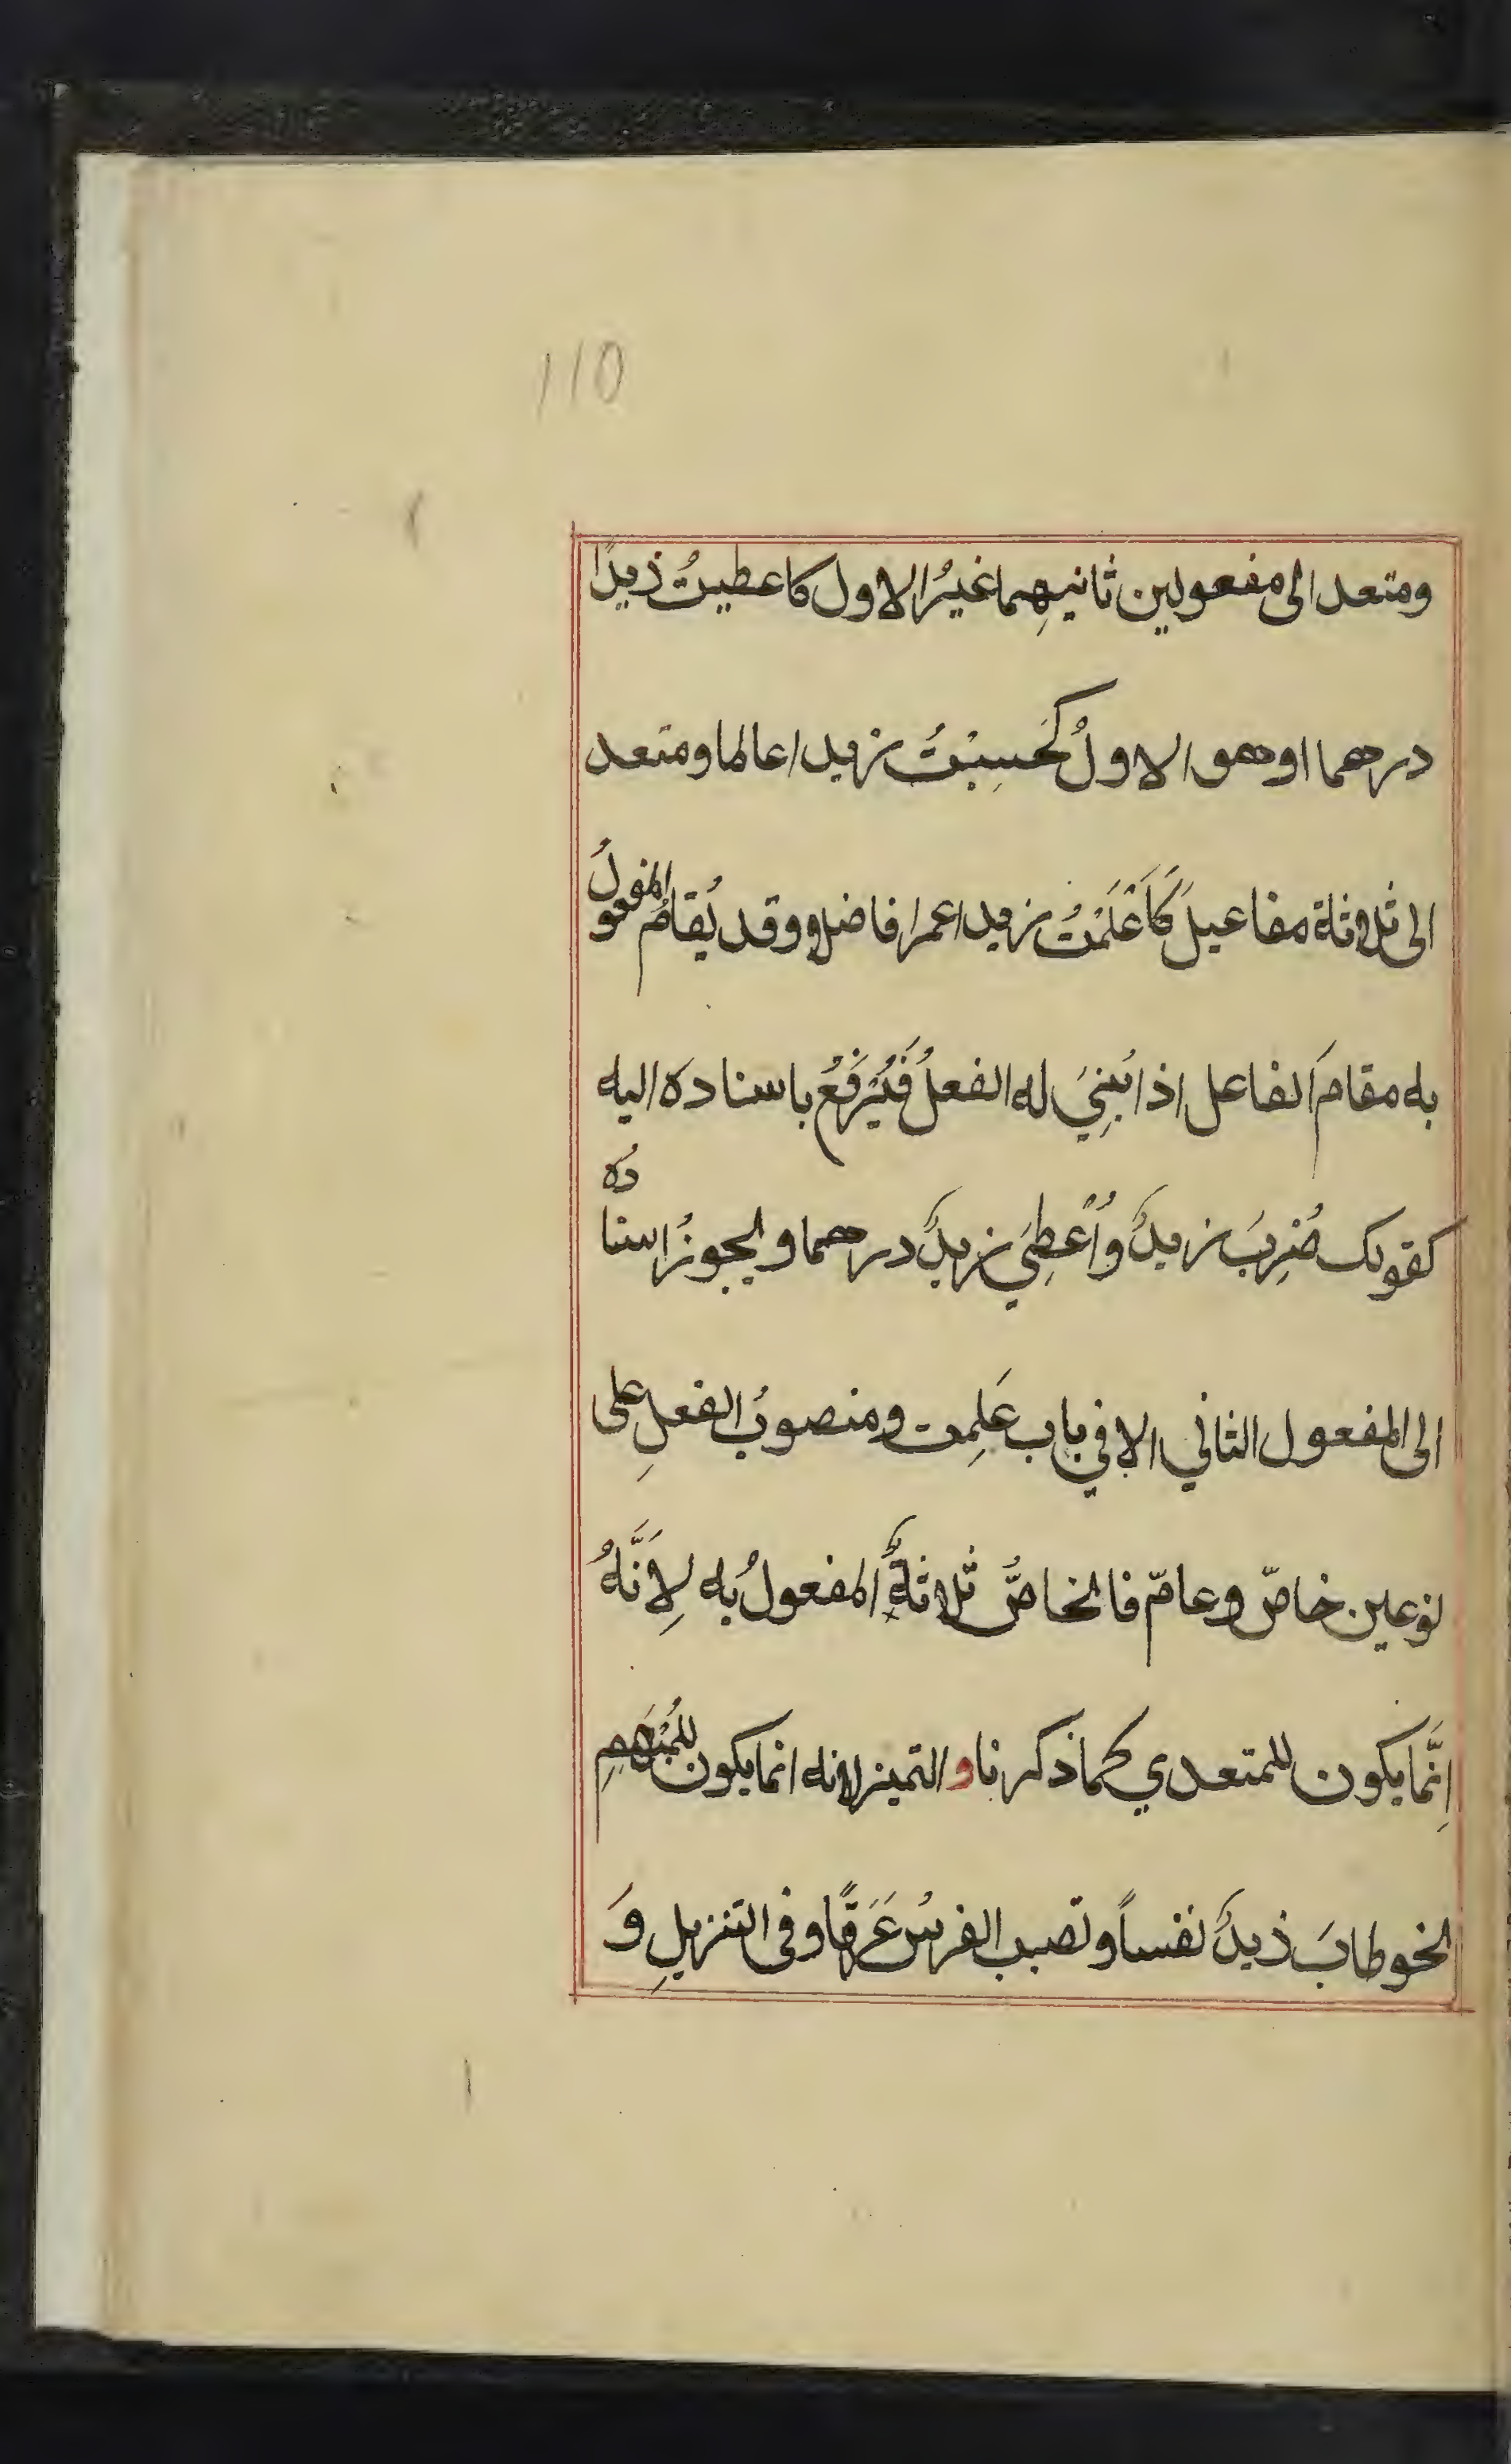 110
ومتعد الى مفعولين ثانيهِما غيرُ الاول كاعطيتُ ذيدًا
درهما او هو الاولُ كَحَسِبْتُ زيدا عالما ومتعد
الى ثلاثة مفاعيلَ كَاَعْلَمْتُ زيدا عمرا فاضلا وقد يُقامُ المفعولُ
به مقامَ الفاعل اذا بُنِيَ له الفعلُ فَيُرْفَعُ باسناده اليه
كقولك ضُرِبَ زيدٌ وَاُعْطِيَ زيدٌ درهما ولايجوزُ اسنادُه
الى المفعول الثاني الا في باب عَلِمت ومنصوبُ الفعلِ على
نوعين خاصّ وعامّ فالخاصُّ ثلاثةٌ المفعولُ به لِاَنَّهُ
اِنَّما يكون للمتعدي كما ذكرنا و التميز لانه انما يكون للمُبْهَمِ
نحو طابَ ذيدٌ نفساً وتصبب الفرسُ عَرَقًا وفى التنزيلِ وَ